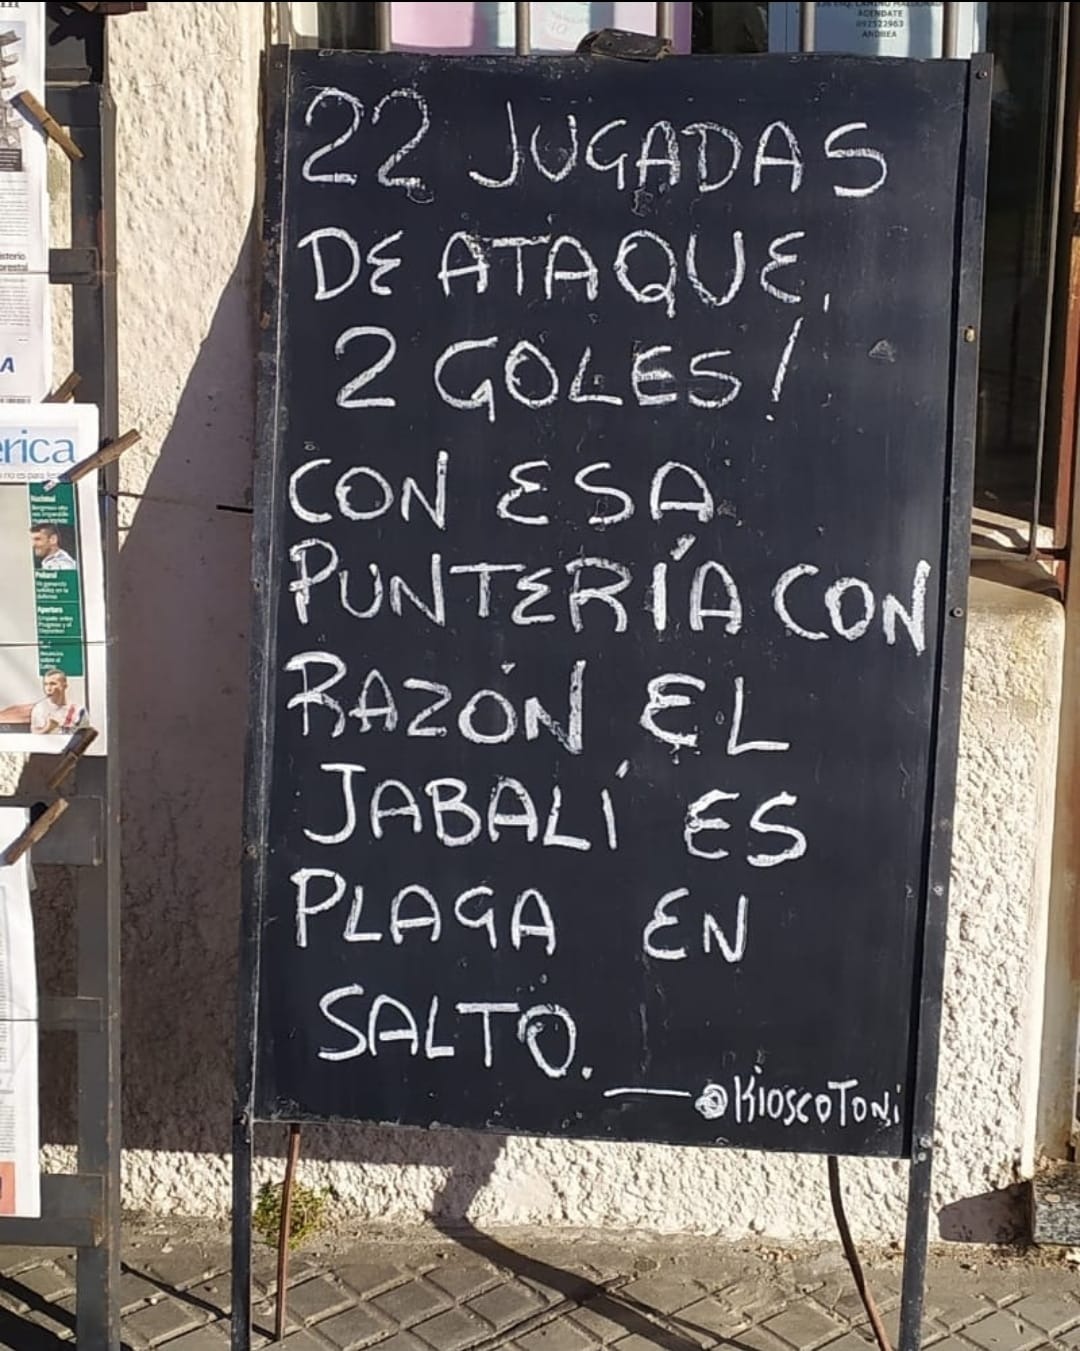 22 JUGADAS
DE ATAQUE,
2 GOLES!
CON ESA
PUNTERÍA CON
RAZÓN EL
JABALÍ ES
PLAGA EN
SALTO.
—@KIOSCOTONi
AGENDATE
092522963
ANDREA
isterio
orestal
A
erica
Nacional
Peñarol
Apertura